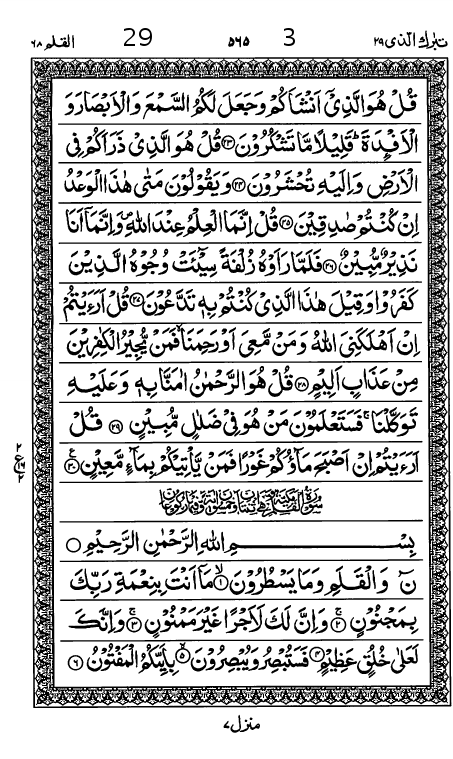 تبرك الذی ۲۹ 3 ۵۶۵ 29 القلم ۶۸
قُلْ هُوَ الَّذِیْۤ اَنْشَاَكُمْ وَجَعَلَ لَكُمُ السَّمْعَ وَالْاَبْصَارَ وَ
الْاَفْـِٕدَةَ ؕ قَلِیْلًا مَّا تَشْكُرُوْنَ ﴿۲۳﴾ قُلْ هُوَ الَّذِیْ ذَرَاَكُمْ فِی
الْاَرْضِ وَاِلَیْهِ تُحْشَرُوْنَ ﴿۲۴﴾ وَیَقُوْلُوْنَ مَتٰی هٰذَا الْوَعْدُ
اِنْ كُنْتُمْ صٰدِقِیْنَ ﴿۲۵﴾ قُلْ اِنَّمَا الْعِلْمُ عِنْدَ اللّٰهِ ۪ وَاِنَّمَاۤ اَنَا
نَذِیْرٌ مُّبِیْنٌ ﴿۲۶﴾ فَلَمَّا رَاَوْهُ زُلْفَةً سِیْٓـَٔتْ وُجُوْهُ الَّذِیْنَ
كَفَرُوْا وَقِیْلَ هٰذَا الَّذِیْ كُنْتُمْ بِهٖ تَدَّعُوْنَ ﴿۲۷﴾ قُلْ اَرَءَیْتُمْ
اِنْ اَهْلَكَنِیَ اللّٰهُ وَمَنْ مَّعِیَ اَوْ رَحِمَنَا ۙ فَمَنْ یُّجِیْرُ الْكٰفِرِیْنَ
مِنْ عَذَابٍ اَلِیْمٍ ﴿۲۸﴾ قُلْ هُوَ الرَّحْمٰنُ اٰمَنَّا بِهٖ وَعَلَیْهِ
تَوَكَّلْنَا ۚ فَسَتَعْلَمُوْنَ مَنْ هُوَ فِیْ ضَلٰلٍ مُّبِیْنٍ ﴿۲۹﴾ قُلْ
اَرَءَیْتُمْ اِنْ اَصْبَحَ مَآؤُكُمْ غَوْرًا فَمَنْ یَّاْتِیْكُمْ بِمَآءٍ مَّعِیْنٍ ﴿۳۰﴾
۲ ع ۲
بِسْمِ اللّٰهِ الرَّحْمٰنِ الرَّحِیْمِ ○
نٓ وَالْقَلَمِ وَمَا یَسْطُرُوْنَ ﴿۱﴾ مَاۤ اَنْتَ بِنِعْمَةِ رَبِّكَ
بِمَجْنُوْنٍ ﴿۲﴾ وَاِنَّ لَكَ لَاَجْرًا غَیْرَ مَمْنُوْنٍ ﴿۳﴾ وَاِنَّكَ
لَعَلٰی خُلُقٍ عَظِیْمٍ ﴿۴﴾ فَسَتُبْصِرُ وَیُبْصِرُوْنَ ﴿۵﴾ بِاَیِّىكُمُ الْمَفْتُوْنُ ﴿۶﴾
منزل ۷